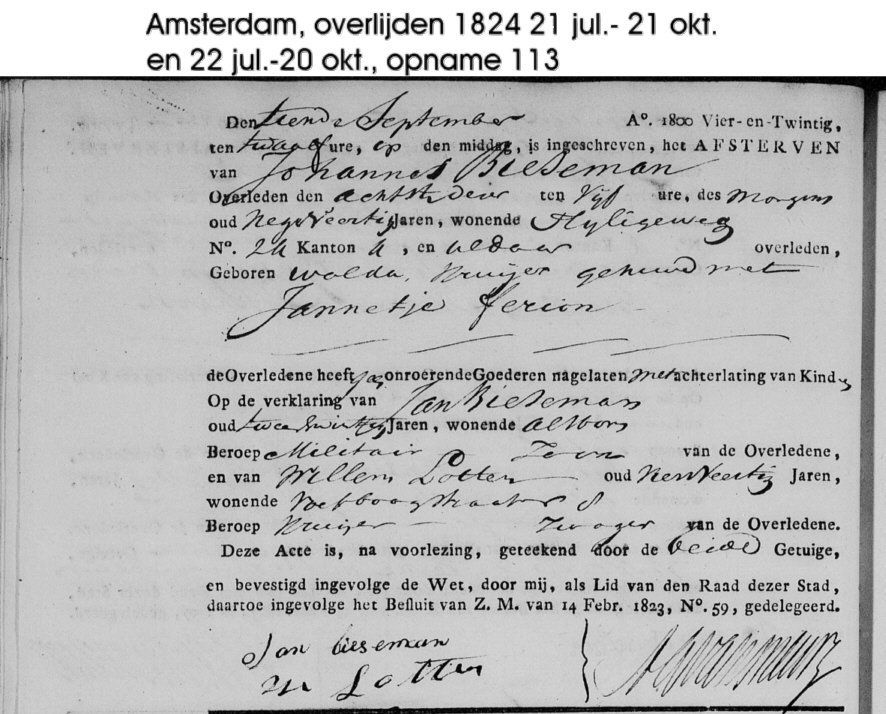 Amsterdam, overlijden 1824 21 jul.- 21 okt.
en 22 jul.-20 okt., opname 113
Den tiende September Aº. 1800 Vier-en-Twintig,
ten twaalf ure, op den middag, is ingeschreven, het AFSTERVEN
van Johannes Bieseman
Overleden den achtste deser ten vijf ure, des morgens
oud Jaren, wonende Hyligeweg
Nº. Kanton 4, en aldaar overleden,
Geboren Kruijer gehuwd met
Jannetje ferion
de Overledene heeft onroerende Goederen nagelaten, met achterlating van Kind
Op de verklaring van Jan Bieseman
oud Jaren, wonende
Beroep Militair Zoon van de Overledene,
en van Willem Lotten oud Jaren,
wonende 8
Beroep Kruijer Zwager van de Overledene.
Deze Acte is, na voorlezing, geteekend door de beide Getuige,
en bevestigd ingevolge de Wet, door mij, als Lid van den Raad dezer Stad,
daartoe ingevolge het Besluit van Z. M. van 14 Febr. 1823, Nº. 59, gedelegeerd.
Jan bieseman
W Lotten